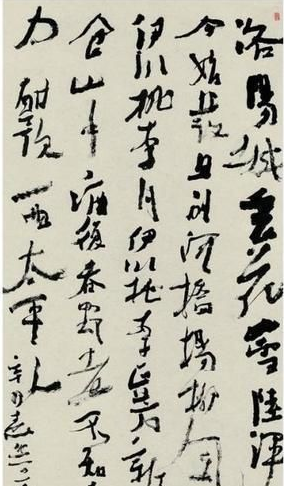 洛陽城里花雪陸渾
今始發旦別河橋楊柳風
伊川桃李月伊川桃李正芳新
食山中酒復春野老不知
力酣歌一曲太平人
辛丑